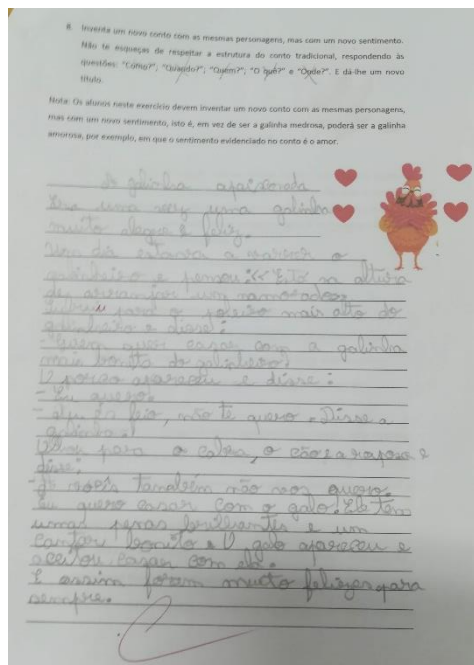 8. Inventa um novo conto com as mesmas personagens, mas com um novo sentimento.
Não te esqueças de respeitar a estrutura do conto tradicional, respondendo às
questões: "Como?"; "Quando?"; "Quem?"; "O quê?" e "Onde?". E dá-lhe um novo
título.
Nota: Os alunos neste exercício devem inventar um novo conto com as mesmas personagens,
mas com um novo sentimento, isto é, em vez de ser a galinha medrosa, poderá ser a galinha
amorosa, por exemplo, em que o sentimento evidenciado no conto é o amor.
A galinha apaixonada
Era uma vez uma galinha
muito alegre e feliz.
Um dia estava a varrer o
galinheiro e pensou: << Está na altura
de arranjar um namorado>>
para o poleiro mais alto do
galinheiro e disse:
- Quem quer casar com a galinha
mais bonita do galinheiro?
O porco apareceu e disse:
- Eu quero!
- feio, não te quero. Disse a
galinha.
para a cabra, o cão e a raposa e
disse:
- A vocês também não vos quero.
Eu quero casar com o galo. Ele tem
umas penas brilhantes e um
cantar bonito. O galo apareceu e
aceitou casar com ela.
E assim foram muito felizes para
sempre.